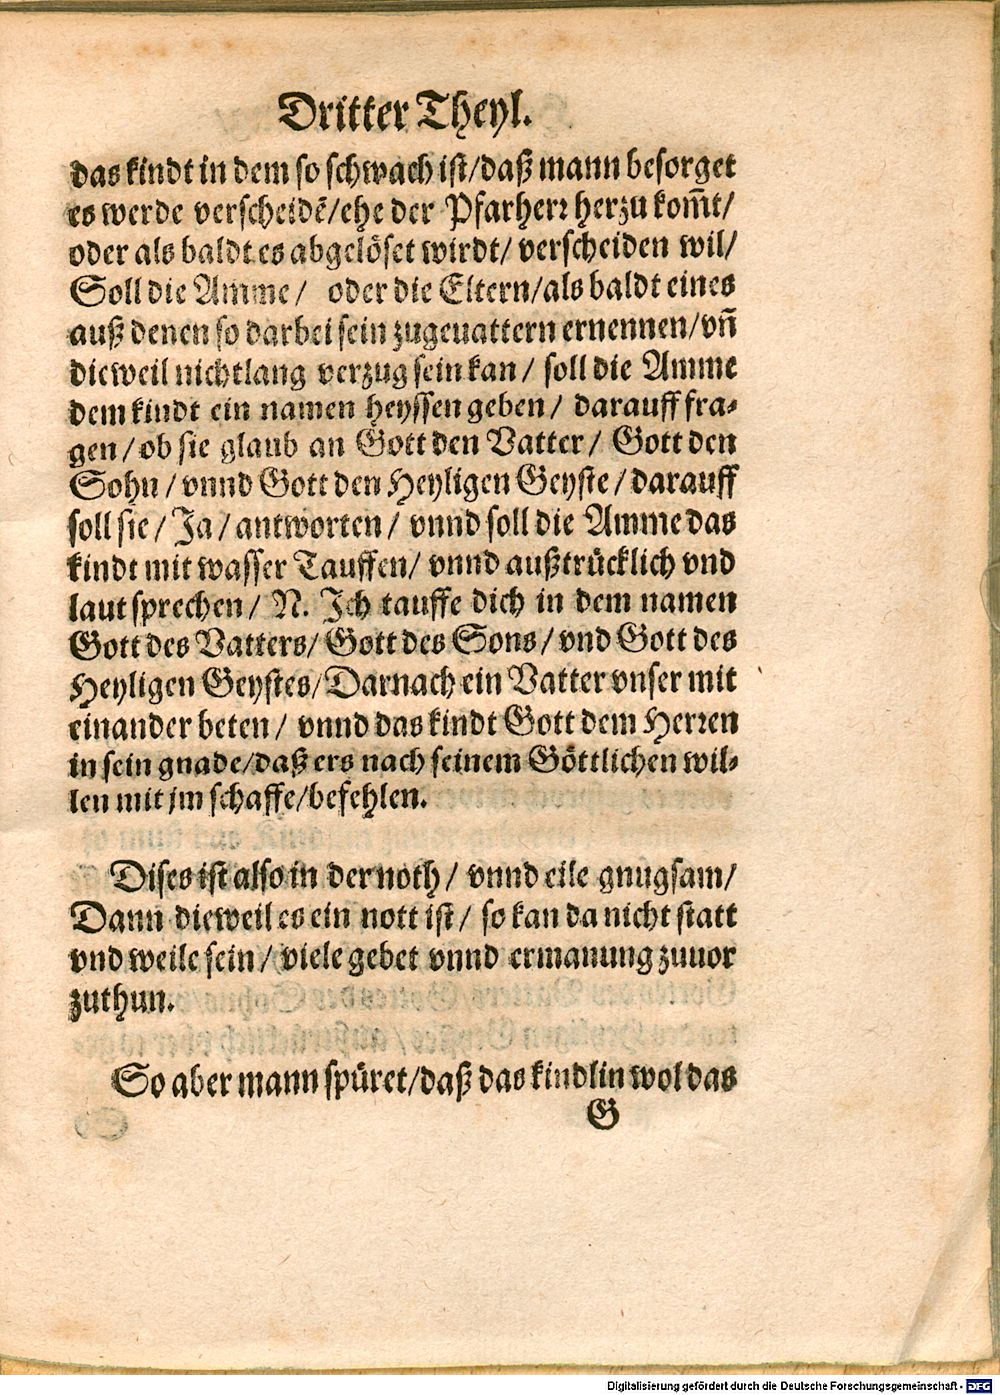 Dritter Theyl.
das kindt in dem so schwach ist/daß mann besorget
es werde verscheidē/ehe der Pfarherꝛ herzu kom̄t/
oder als baldt es abgelöset wirdt/ verscheiden wil/
Soll die Amme/ oder die Eltern/als baldt eines
auß denen so darbei sein zugeuattern ernennen/vn̄
dieweil nicht lang verzug sein kan/ soll die Amme
dem kindt ein namen heyssen geben/ darauff fra-
gen/ob sie glaub an Gott den Vatter/ Gott den
Sohn/vnnd Gott den Heyligen Geyste/darauff
soll sie/Ja/antworten/ vnnd soll die Amme das
kindt mit wasser Tauffen/ vnnd außtrücklich vnd
laut sprechen/ N. Ich tauffe dich in dem namen
Gott des Vatters/Gott des Sons/vnd Gott des
Heyligen Geystes/Darnach ein Vatter vnser mit
einander beten/ vnnd das kindt Gott dem Herꝛen
in sein gnade/daß ers nach seinem Göttlichen wil-
len mit jm schaffe/befehlen.
Dises ist also in der noth/ vnnd eile gnugsam/
Dann dieweil es ein nott ist/ so kan da nicht statt
vnd weile sein/ viele gebet vnnd ermanung zuuor
zuthun.
So aber mann spüret/daß das kindlin wol das
G
Digitalisierung gefördert durch die Deutsche Forschungsgemeinschaft - DFG